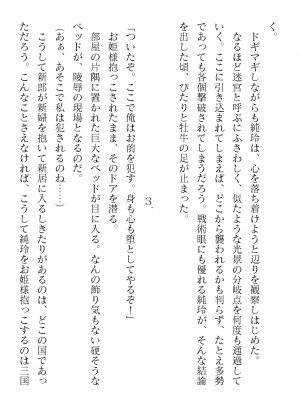 く。
　ドギマギしながらも純玲は、心を落ち着けようと辺りを観察しはじめた。
　なるほど迷宮と呼ぶにふさわしく、似たような光景の分岐点を何度も通過して
いく。ここに引き込まれてしまえば、どこから襲われるかも判らず、たとえ多勢
であっても各個撃破されてしまうだろう。戦術眼にも優れる純玲が、そんな結論
を出した頃、ぴたりと牡牛の足が止まった。
3
「ついたぞ。ここで俺はお前を犯す。身も心も堕としてやるぞ！」
　お姫様抱っこされたまま、そのドアを潜る。
　部屋の片隅に置かれた巨大なベッドが目に入る。なんの飾り気もない硬そうな
ベッドが、陵辱の現場となるのだ。
（あぁ、あそこで私は犯されるのね……）
　こうして新郎が新婦を抱いて新居に入るしきたりがあるのは、どこの国であっ
ただろう。こんなことさえなければ、こうして純玲をお姫様抱っこするのは三国